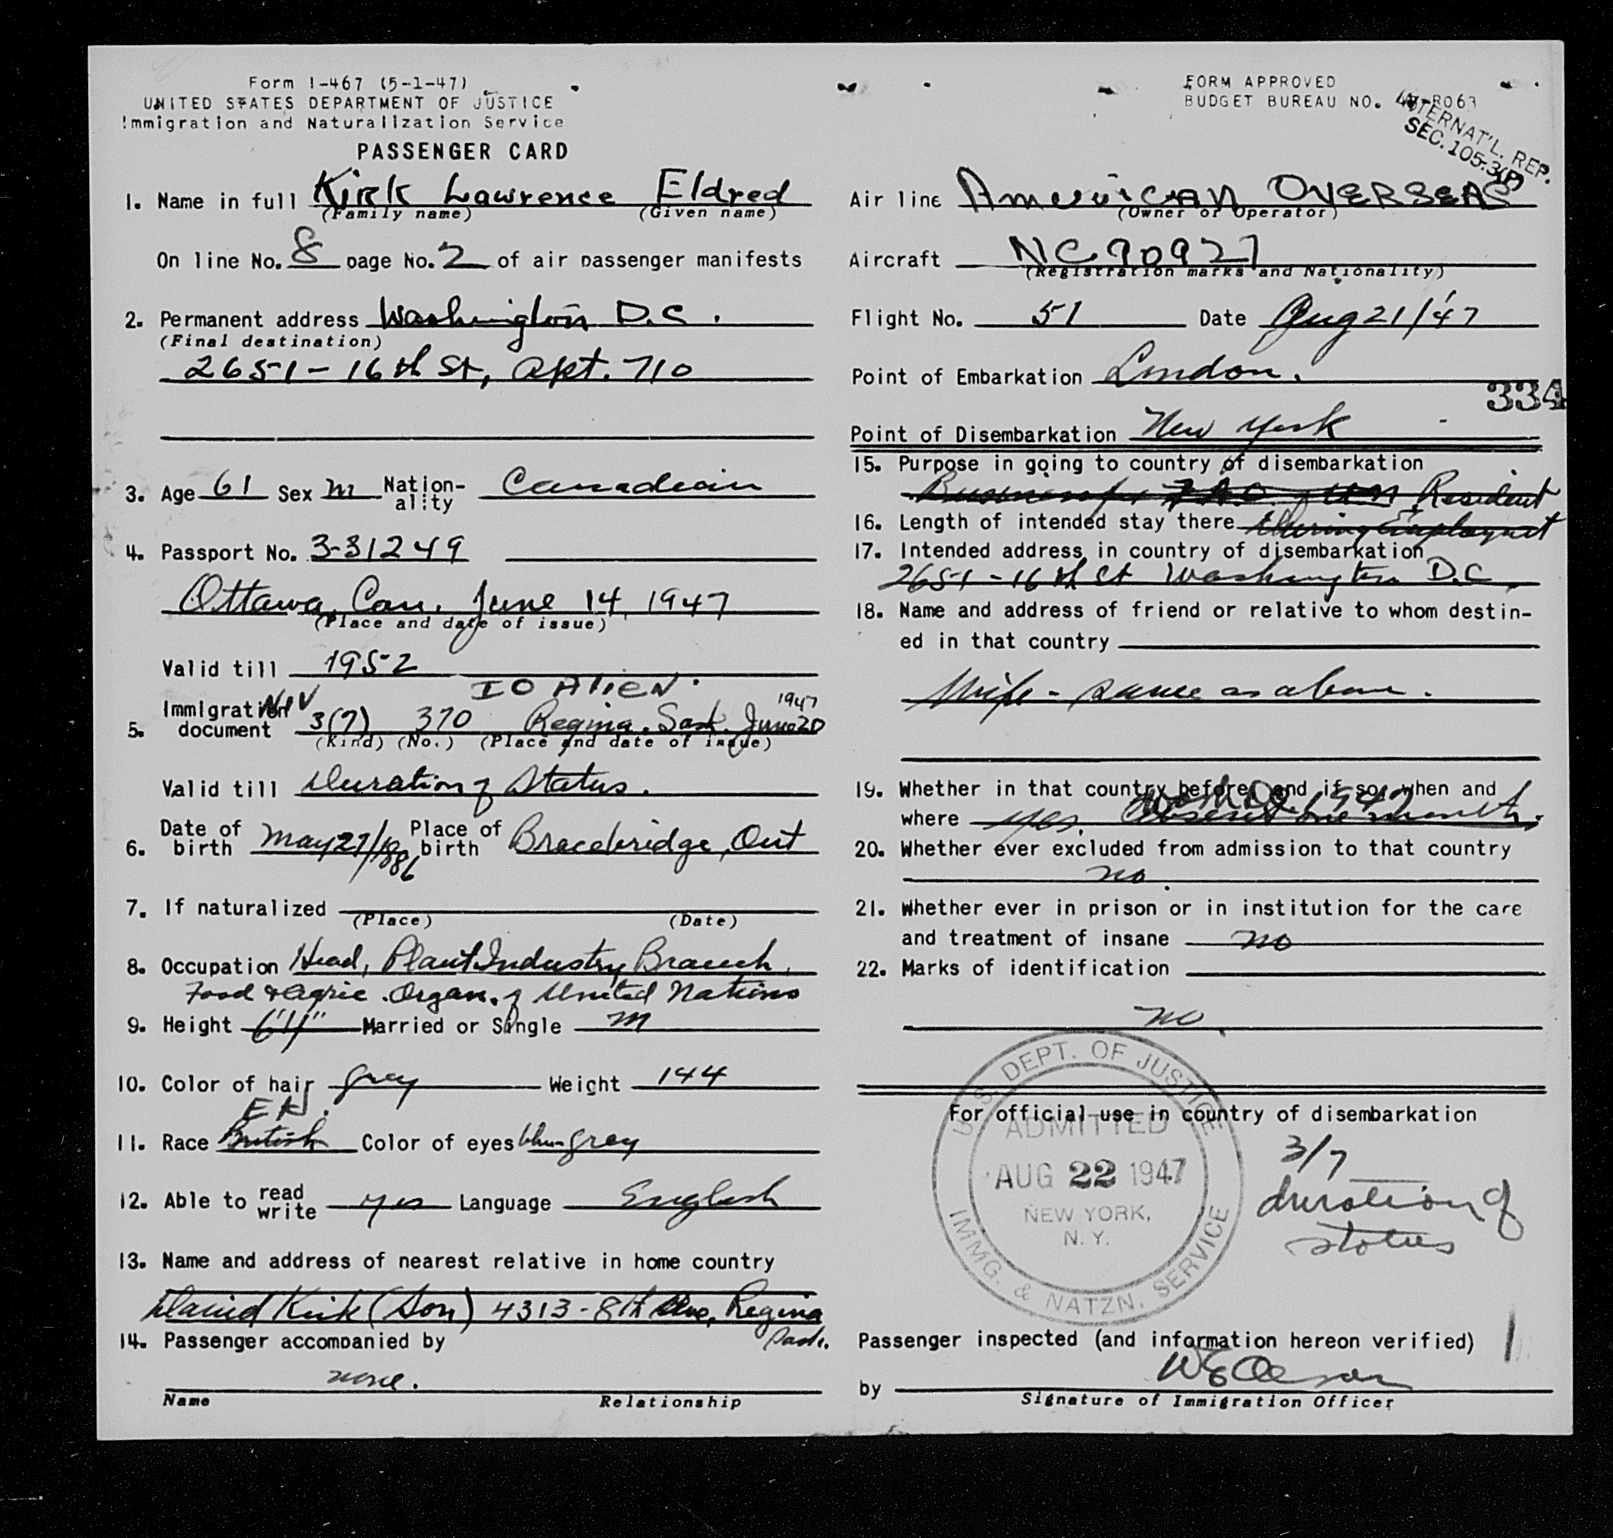 Form I-467 (5-1-47)
UNITED STATES DEPARTMENT OF JUSTICE
Immigration and Naturalization Service
PASSENGER CARD
1. Name in full Kirk Lawrence Eldred
(Family name) (Given name)
On line No. 8 page No. 2 of air passenger manifests
2. Permanent address Washington D.C.
(Final destination)
2651 - 16th St, Apt. 710
3. Age 61 Sex M Nation-ality Canadian
4. Passport No. 3-31249
Ottawa, Can. June 14, 1947
(Place and date of issue)
Valid till 1952
IO Alien.
NIV
5. Immigration document 3(7) 370 Regina, Sask. June 20 1947
(Kind) (No.) (Place and date of issue)
Valid till Duration of Status.
6. Date of birth May 27/1886 Place of birth Bracebridge, Ont
7. If naturalized
(Place) (Date)
8. Occupation Head, Plant Industry Branch,
Food & Agric. Organ. of United Nations
9. Height Married or Single M
10. Color of hair grey Weight 144
11. Race British Color of eyes blue-grey
12. Able to read write yes Language English
13. Name and address of nearest relative in home country
David Kirk (Son) 4313 - 8th Ave, Regina
Sask.
14. Passenger accompanied by
none.
Name Relationship
FORM APPROVED
BUDGET BUREAU NO.
INTERNAT'L. REP.
SEC. 105-3(7)
Air line American OVERSEAS
(Owner or Operator)
Aircraft NC90927
(Registration marks and Nationality)
Flight No. 51 Date Aug 21/47
Point of Embarkation London.
334
Point of Disembarkation New York
15. Purpose in going to country of disembarkation
Business for FAO of UN Resident
16. Length of intended stay there During Employment
17. Intended address in country of disembarkation
2651 - 16th St Washington D.C.
18. Name and address of friend or relative to whom destin-
ed in that country
Wife - same as above.
19. Whether in that country before, and if so, when and
where yes. Wash DC 1947 Absent one month.
20. Whether ever excluded from admission to that country
no.
21. Whether ever in prison or in institution for the care
and treatment of insane no
22. Marks of identification
no.
For official use in country of disembarkation
U.S. DEPT. OF JUSTICE
ADMITTED
AUG 22 1947
NEW YORK,
N. Y.
IMMG. & NATZN. SERVICE
3/7
duration of
status
Passenger inspected (and information hereon verified)
by
Signature of Immigration Officer